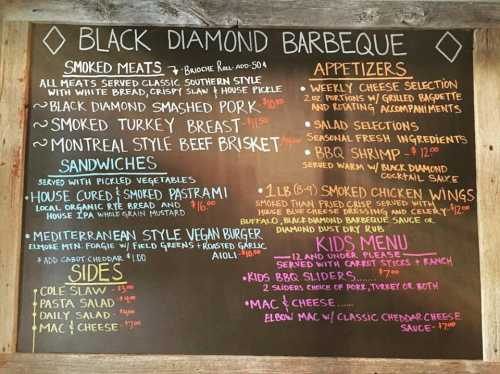 BLACK DIAMOND BARBEQUE
SMOKED MEATS BRIOCHE ROLL-ADD-50¢
ALL MEATS SERVED CLASSIC SOUTHERN STYLE
WITH WHITE BREAD, CRISPY SLAW & HOUSE PICKLE
~BLACK DIAMOND SMASHED PORK-$10.00
~SMOKED TURKEY BREAST-$11.50
~MONTREAL STYLE BEEF BRISKET
SANDWICHES
SERVED WITH PICKLED VEGETABLES
•HOUSE CURED & SMOKED PASTRAMI
LOCAL ORGANIC RYE BREAD AND $16.00
HOUSE IPA WHOLE GRAIN MUSTARD
•MEDITERRANEAN STYLE VEGAN BURGER
ELMORE MTN. FOAGIE W/ FIELD GREENS + ROASTED GARLIC
AIOLI-$10.50
* ADD CABOT CHEDDAR $1.00
SIDES
COLE SLAW - $3.00
PASTA SALAD - $4.00
DAILY SALAD - $4.00
MAC & CHEESE - $7.00
APPETIZERS
• WEEKLY CHEESE SELECTION
2 OZ. PORTIONS W/ GRILLED BAGUETTE
AND ROTATING ACCOMPANIMENTS
• SALAD SELECTIONS
SEASONAL FRESH INGREDIENTS
• BBQ SHRIMP - $12.00
SERVED WARM W/ BLACK DIAMOND
COCKTAIL SAUCE
•1 LB (8-9) SMOKED CHICKEN WINGS
SMOKED THAN FRIED CRISP SERVED WITH
HOUSE BLUE CHEESE DRESSING AND CELERY-$12.00
BUFFALO, BLACK DIAMOND BARBEQUE SAUCE OR
DIAMOND DUST DRY RUB
KIDS MENU
12 AND UNDER PLEASE
SERVED WITH CARROT STICKS + RANCH
•KIDS BBQ SLIDERS....... $7.00
2 SLIDERS CHOICE OF PORK, TURKEY OR BOTH
•MAC & CHEESE......
ELBOW MAC W/ CLASSIC CHEDDAR CHEESE
SAUCE-$7.00